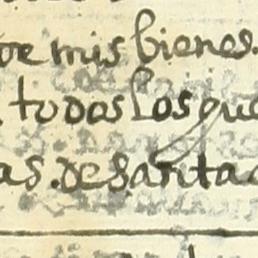 de mis bienes.
todos los que
as. de santa